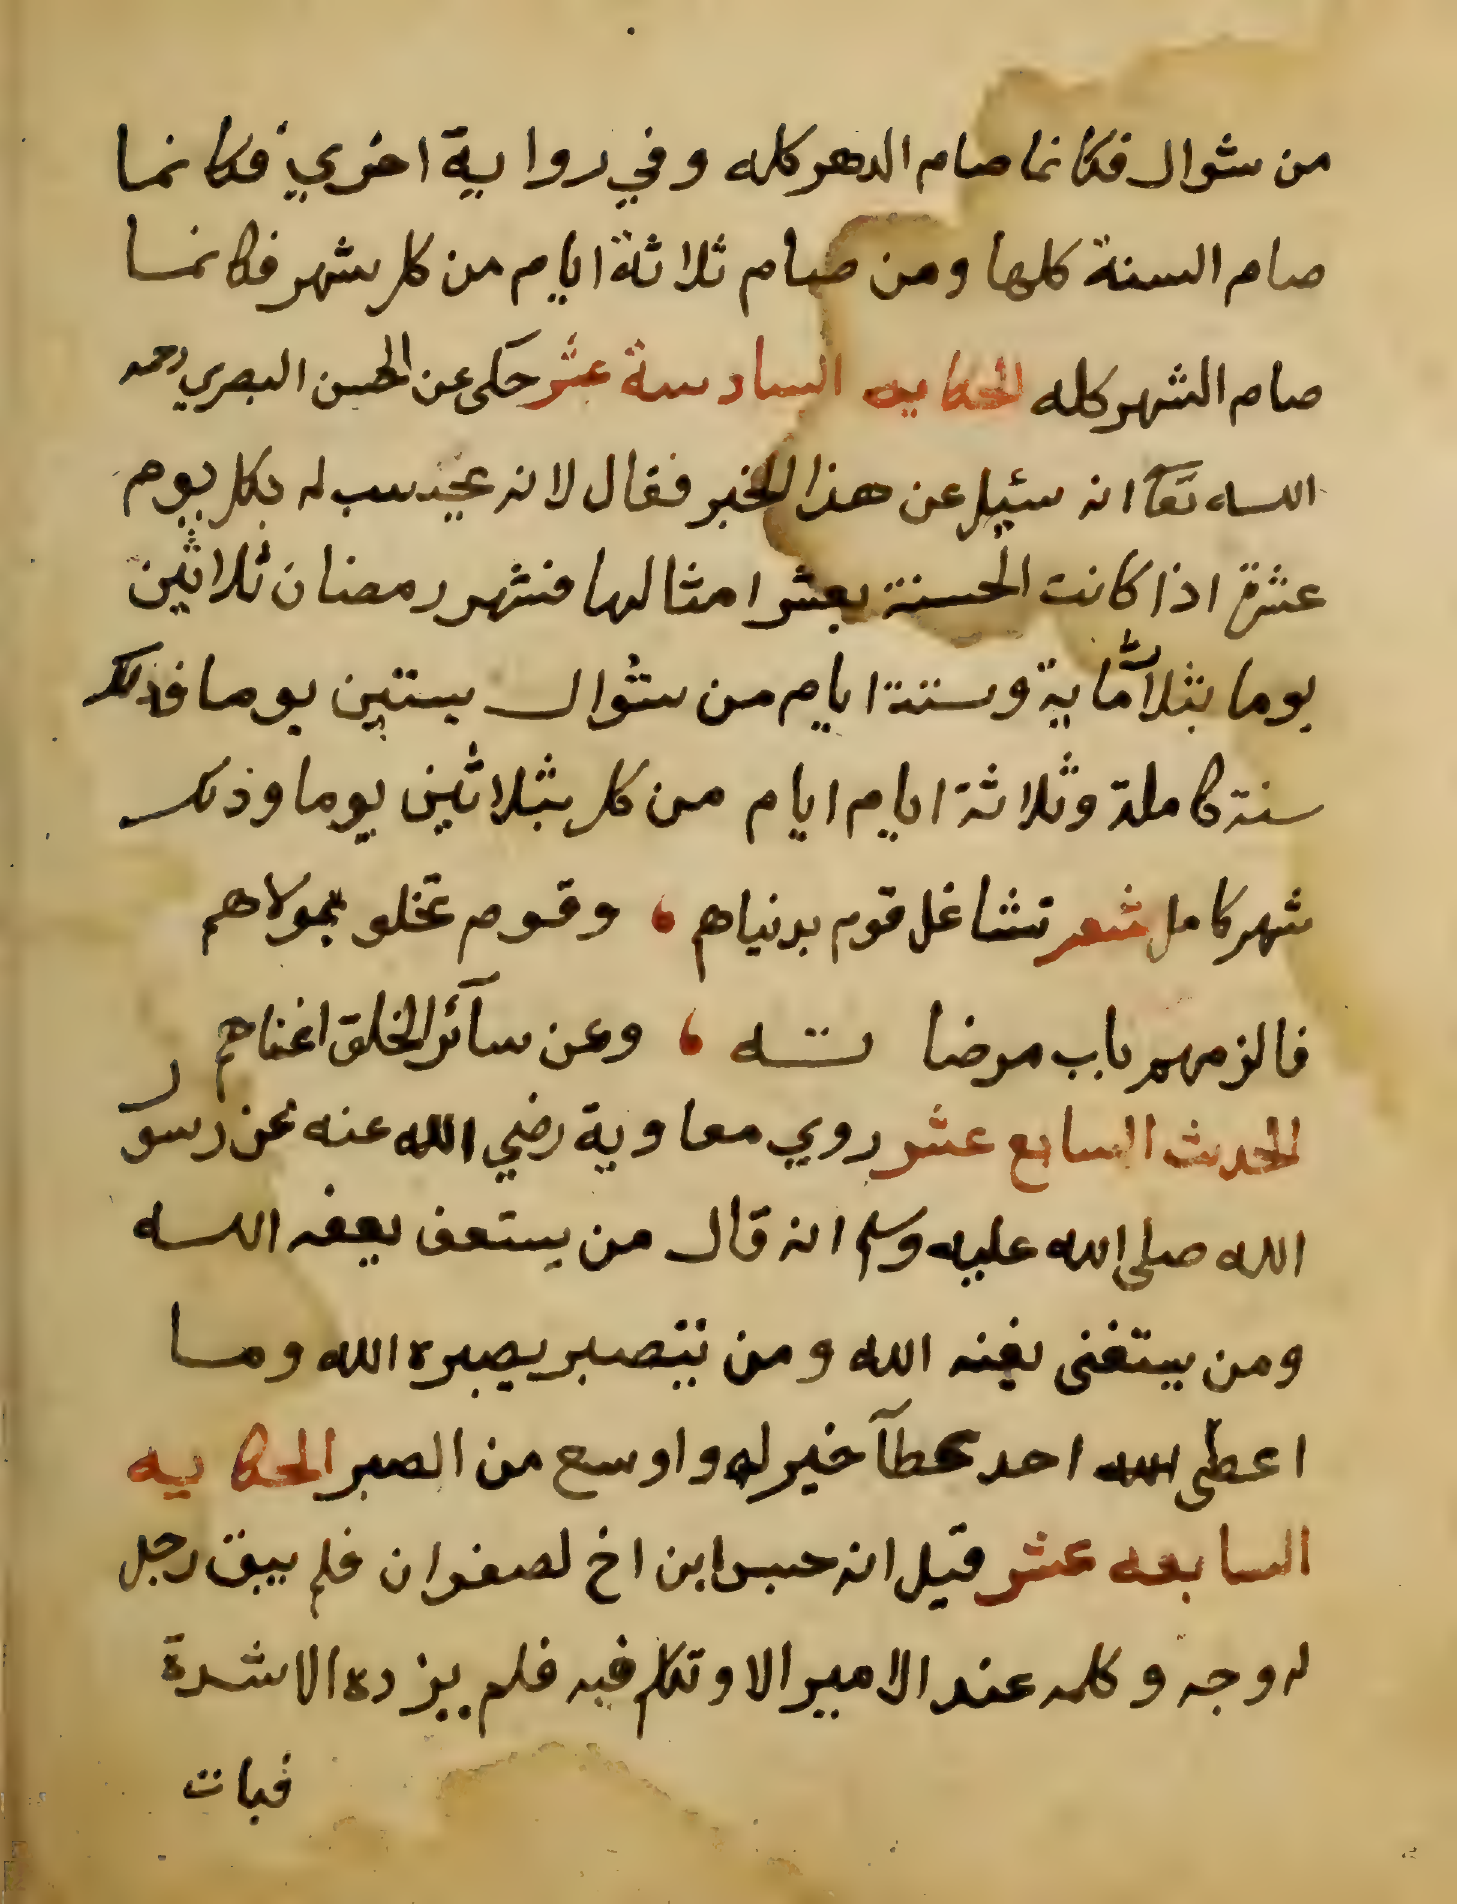 من شوال فكانما صام الدهر كله وفي رواية اخري فكانما
صام السنة كلها ومن صام ثلاثة ايام من كل شهر فكانما
صام الشهر كله الحكايه السادسة عشر حكى عن الحسن البصري رحمه
الله تعا انه سئيل عن هذا الخبر فقال لانه يحسب له بكل يوم
عشرة اذا كانت الحسنة بعشر امثالها فشهر رمضان ثلاثين
يوما بثلاثماية وستة ايام من شوال بستين يوما فذلك
سنة كاملة وثلاثة ايام ايام من كل بثلاثين يوما وذلك
شهر كامل شعر تشاغل قوم بدنياهم ، وقوم تخلو بمولاهم
فالزمهم باب مرضاته ، وعن سآئر الخلق اغناهم
الحدث السابع عشر روي معاوية رضي الله عنه عن رسول
الله صلى الله عليه وسلم انه قال من يستعف يعفه الله
ومن يستغنى يغنه الله ومن يتصبر يصبره الله وما
اعطى الله احد عطآ خير له واوسع من الصبر الحكايه
السابعه عشر قيل انه حبس ابن اخ لصفوان فلم يبق رجل
له وجه وكلمه عند الامير الا وتكلم فيه فلم يزده الا شدة
فبات